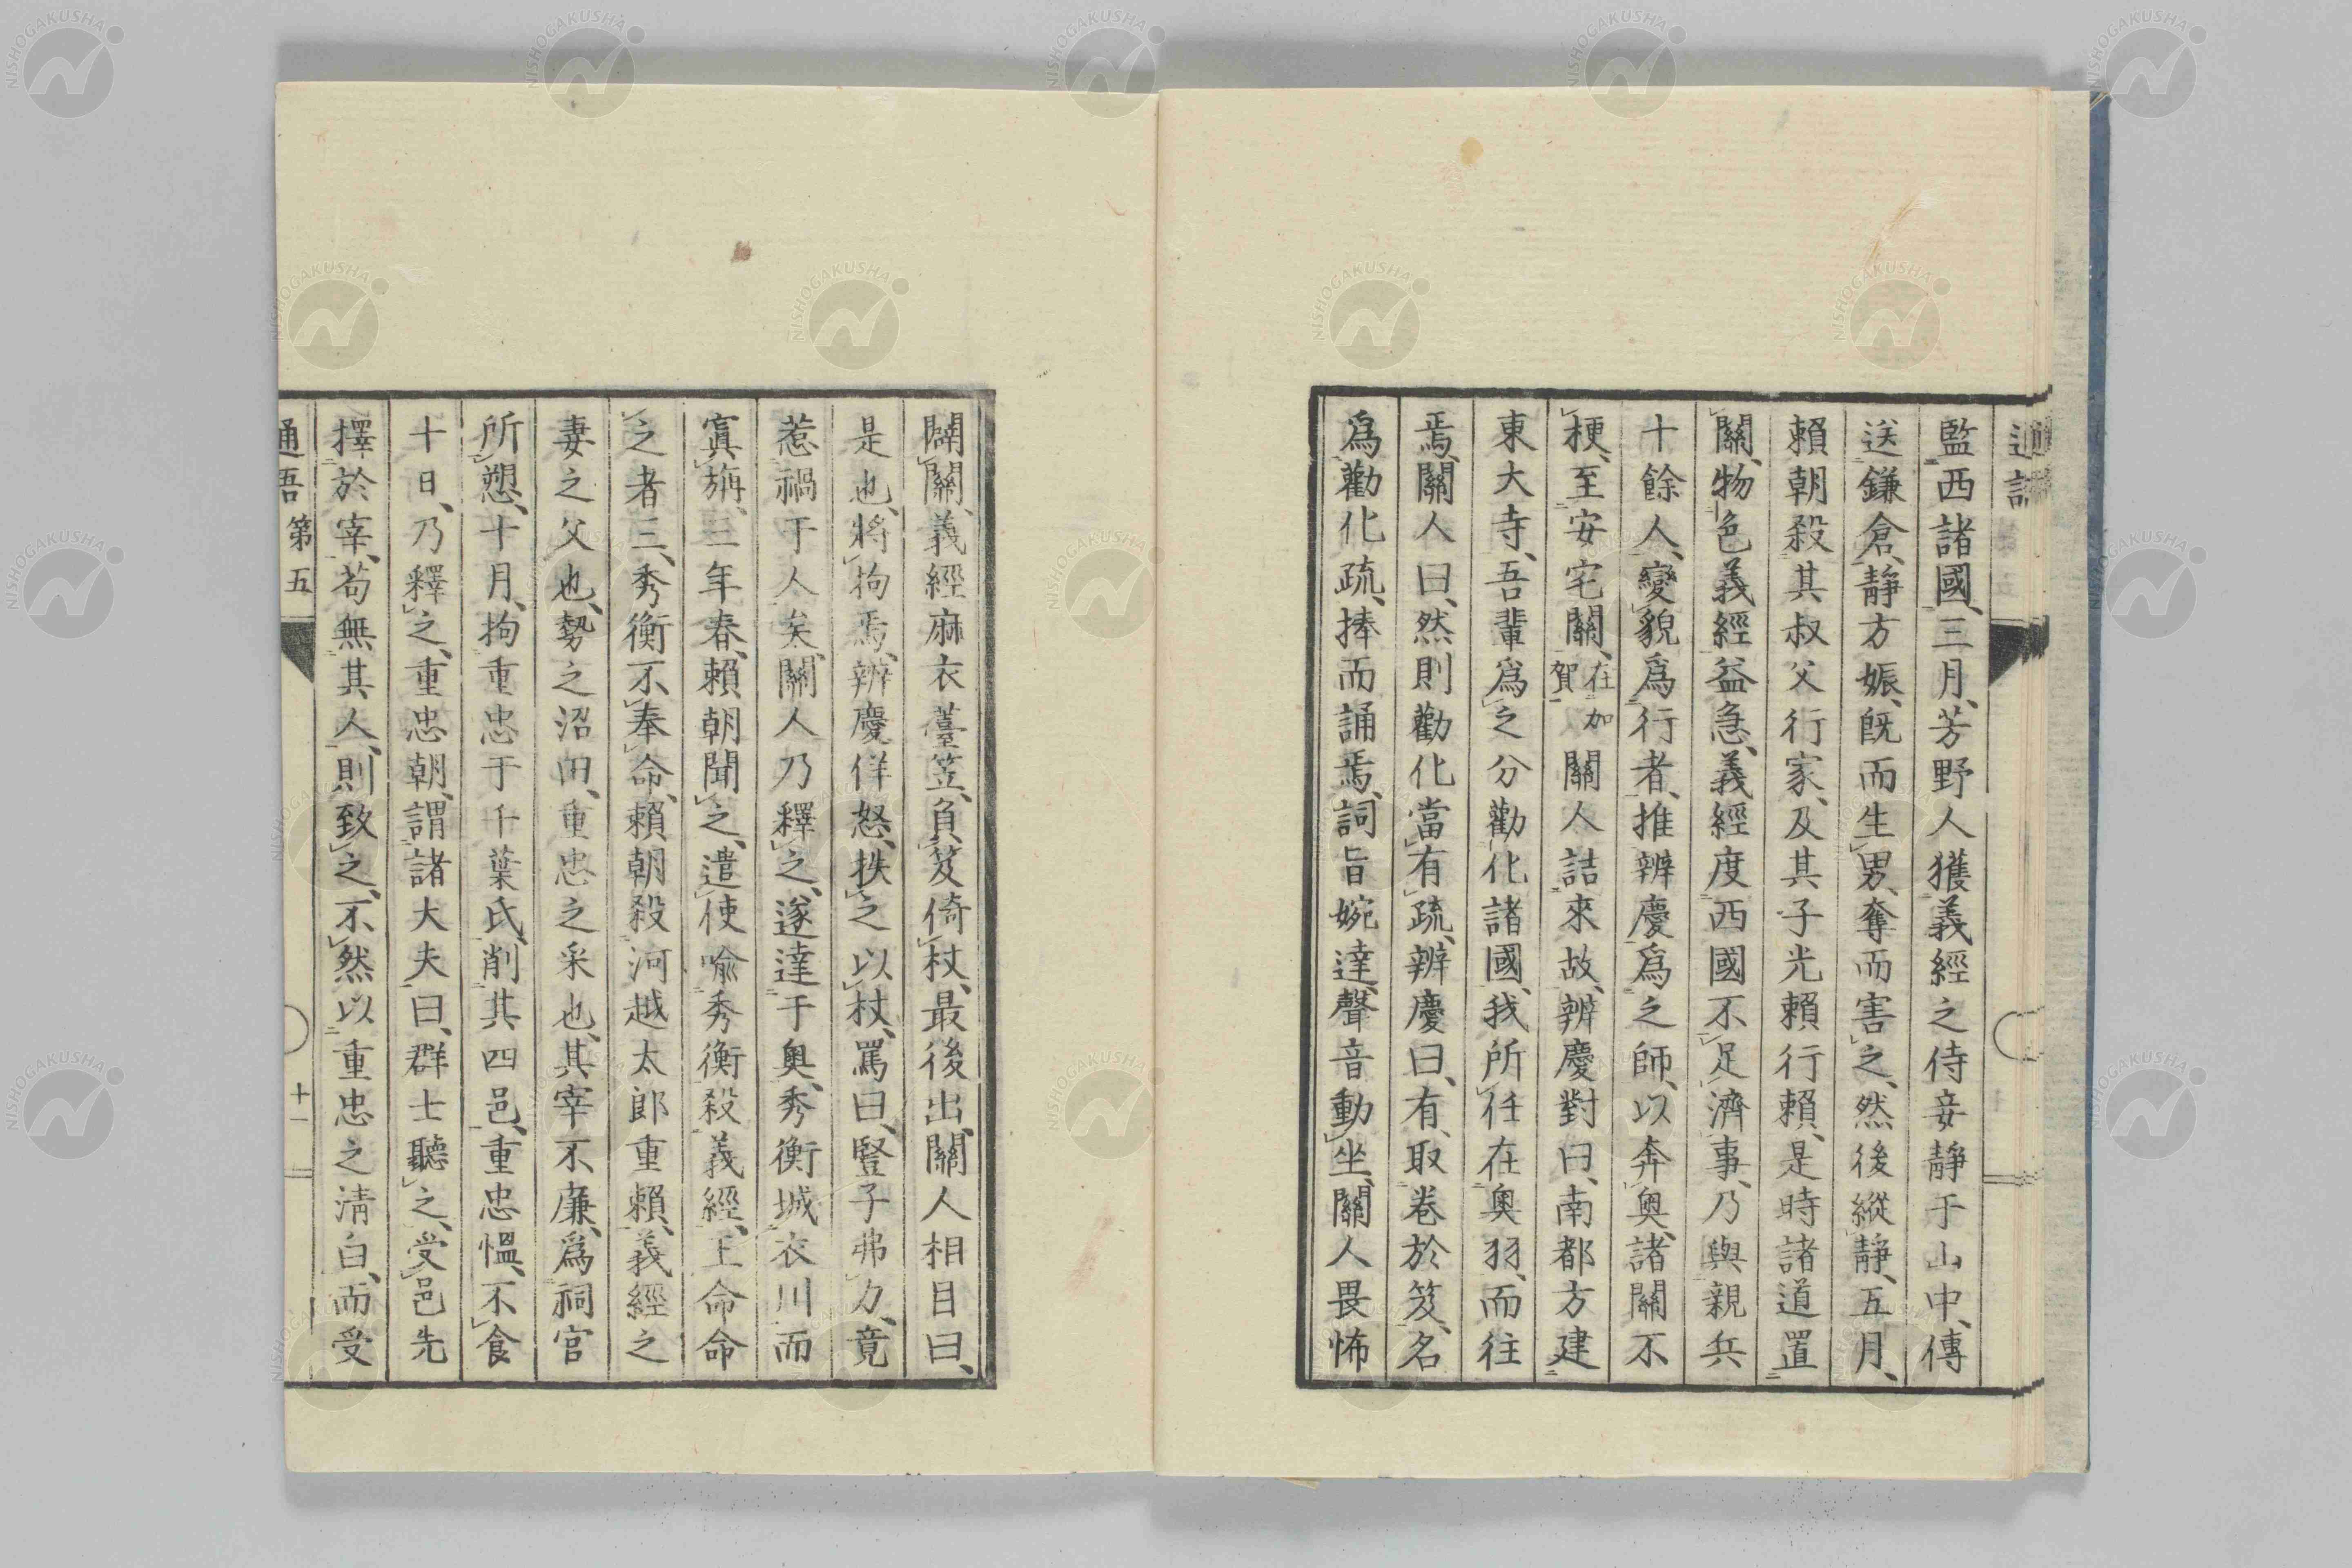 監西諸國、三月、芳野人獲義經之侍妾靜于山中、傳
送鎌倉、靜方娠、既而生男、奪而害之、然後縱靜、五月、
賴朝殺其叔父行家、及其子光賴行賴、是時諸道置
關、物色義經益急、義經度西國不足濟事、乃與親兵
十餘人、變貌爲行者、推辨慶爲之師、以奔奥、諸關不
梗、至安宅關、在加賀關人詰來故、辨慶對曰、南都方建
東大寺、吾輩爲之分勸化諸國、我所任在奥羽、而往
焉、關人曰、然則勸化當有疏、辨慶曰、有、取卷於笈、名
爲勸化疏、捧而誦焉、詞旨婉達、聲音動坐、關人畏怖
闢關、義經麻衣薹笠、負笈倚杖、最後出、關人相目曰、
是也、將拘焉、辨慶佯怒、抶之以杖、罵曰、豎子弗力、竟
惹禍于人矣、關人乃釋之、遂達于奥、秀衡城衣川而
寘旃、三年春、賴朝聞之、遣使喩秀衡殺義經、王命命
之者三、秀衡不奉命、賴朝殺河越太郎重賴、義經之
妻之父也、勢之沼田、重忠之采也、其宰不廉、爲祠官
所愬、十月、拘重忠于千葉氏、削其四邑、重忠慍、不食
十日、乃釋之、重忠朝、謂諸大夫曰、群士聽之、受邑先
擇於宰、苟無其人、則致之、不然以重忠之淸白、而受
通語 第五
十一
NISHOGAKUSHA